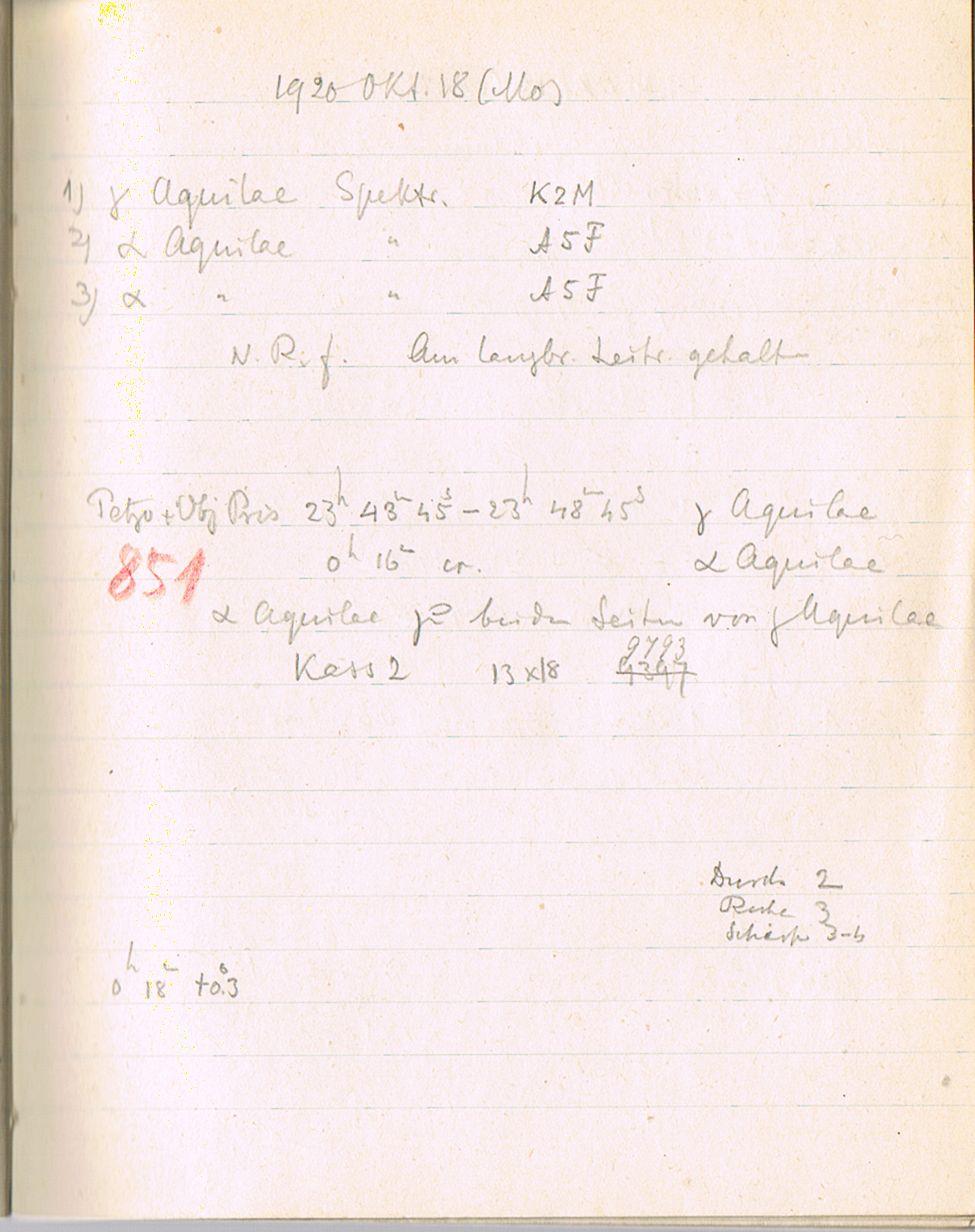 1920 Okt. 18 (Mo)
1) γ Aquilae Spektr. K2M
2) α Aquilae " A5F
3) α " " A5F
N. R. f. Am Leitr. gehalten
Petzv + Obj Pris 23h 43m 45s – 23h 48m 45s γ Aquilae
851 0h 16m α Aquilae
α Aquilae zu beiden Seiten von γ Aquilae
9793
Kass 2 13x18 ~~9397~~
Durch 2
Ruhe 3
Schärfe 3-4
0h 18m +0s.3